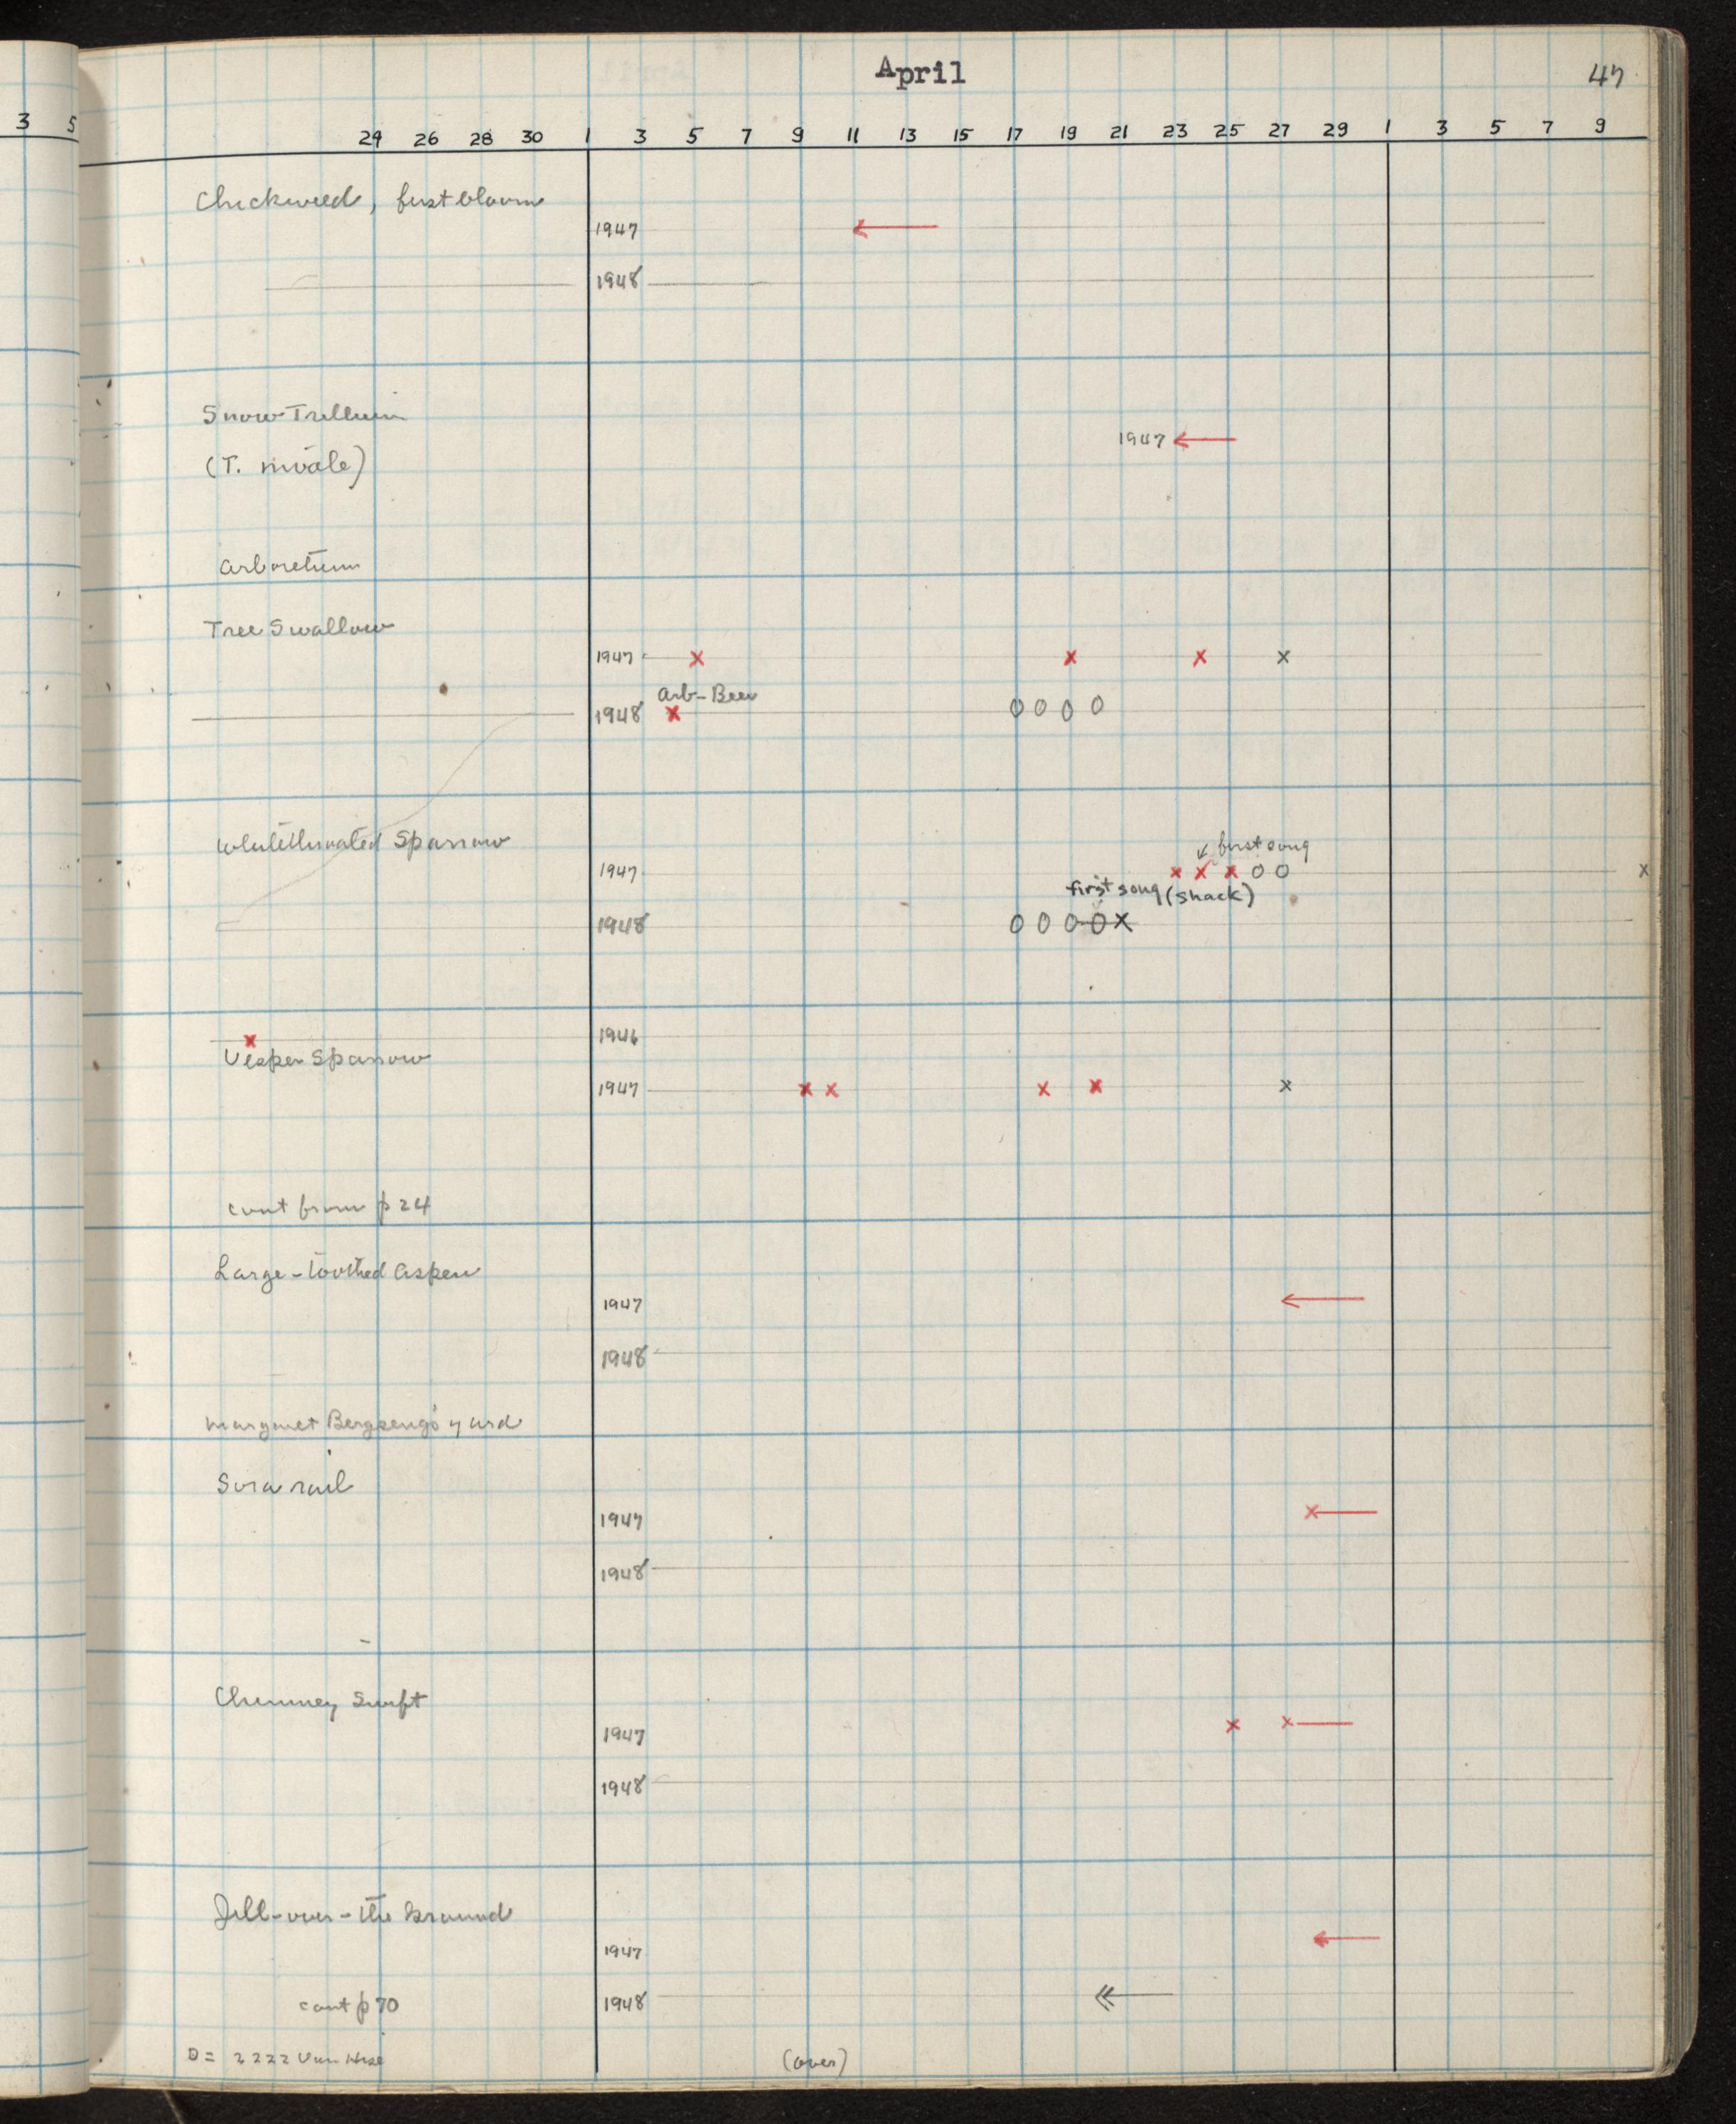 April
47
3 5
24 26 28 30 1 3 5 7 9 11 13 15 17 19 21 23 25 27 29 1 3 5 7 9
Chickweed, first bloom
1947
1948
Snow Trillium
1947
(T. nivale)
Arboretum
Tree Swallow
1947 x x x x
Arb-Beer
1948 x 0 0 0 0
Whitethroated Sparrow
first song
1947 x x x 0 0 x
first song (shack)
1948 0 0 0 0 x
1946
x
Vesper Sparrow
1947 x x x x x
cont from p 24
Large-toothed Aspen
1947
1948
Margaret Bergseng's yard
Sora rail
1947 x
1948
Chimney Swift
1947 x x
1948
Jill-over-the Ground
1947
cont p 70
1948
D = 2222 Van Hise
(over)